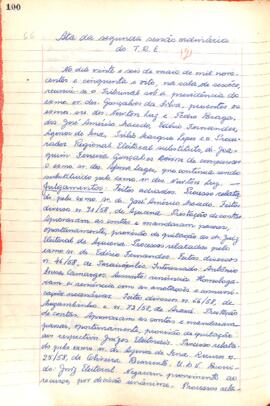 100
66
Ata da segunda sessão ordinária
do T.R.E.
No dia vinte e seis de maio de mil nove-
centos e cinquenta e oito, na sala de sessões,
reuniu-se o Tribunal sob a presidência do
exmo. sr. des. Gonçalves da Silva, presentes os
exmos. srs. des. Newton Luz e Pedro Braga,
drs. José Américo Macedo, Edésio Fernandes,
e o Procu-
rador Regional Eleitoral substituto dr. Joa-
quim Ferreira Gonçalves. Deixou de comparecer
o exmo. sr. des. que continua sendo
substituído pelo exmo. sr. des. Newton Luz.
Julgamentos: Feitos adiados. Processo relata-
do pelo exmo. sr. dr. José Américo Macedo. Feitos
diversos n. 71/58, de Prestação de contas.
Aprovaram as contas e mandaram passar,
oportunamente, provisão de quitação ao dr. Juiz
Eleitoral de Processos relatados pelo
exmo. sr. dr. Edésio Fernandes. Feitos diversos
n. 46/58, de Interessado: Antônio
Camargos. Homologa-
ram a com as anotações e comuni-
cações necessárias. Feitos diversos n. 66/58, de
e n. 73/58, de Araxá. Presta-
ção de contas. Aprovaram as contas e mandaram
passar, oportunamente, provisão de quitação
aos respectivos Juízes Eleitorais. Processo relata-
do pelo exmo. sr. dr. Recurso n.
25/58, de Oliveira. Recorrente: U.D.N. Recorri-
do: Juiz Eleitoral. Negaram provimento ao
recurso por decisão unânime. Processos